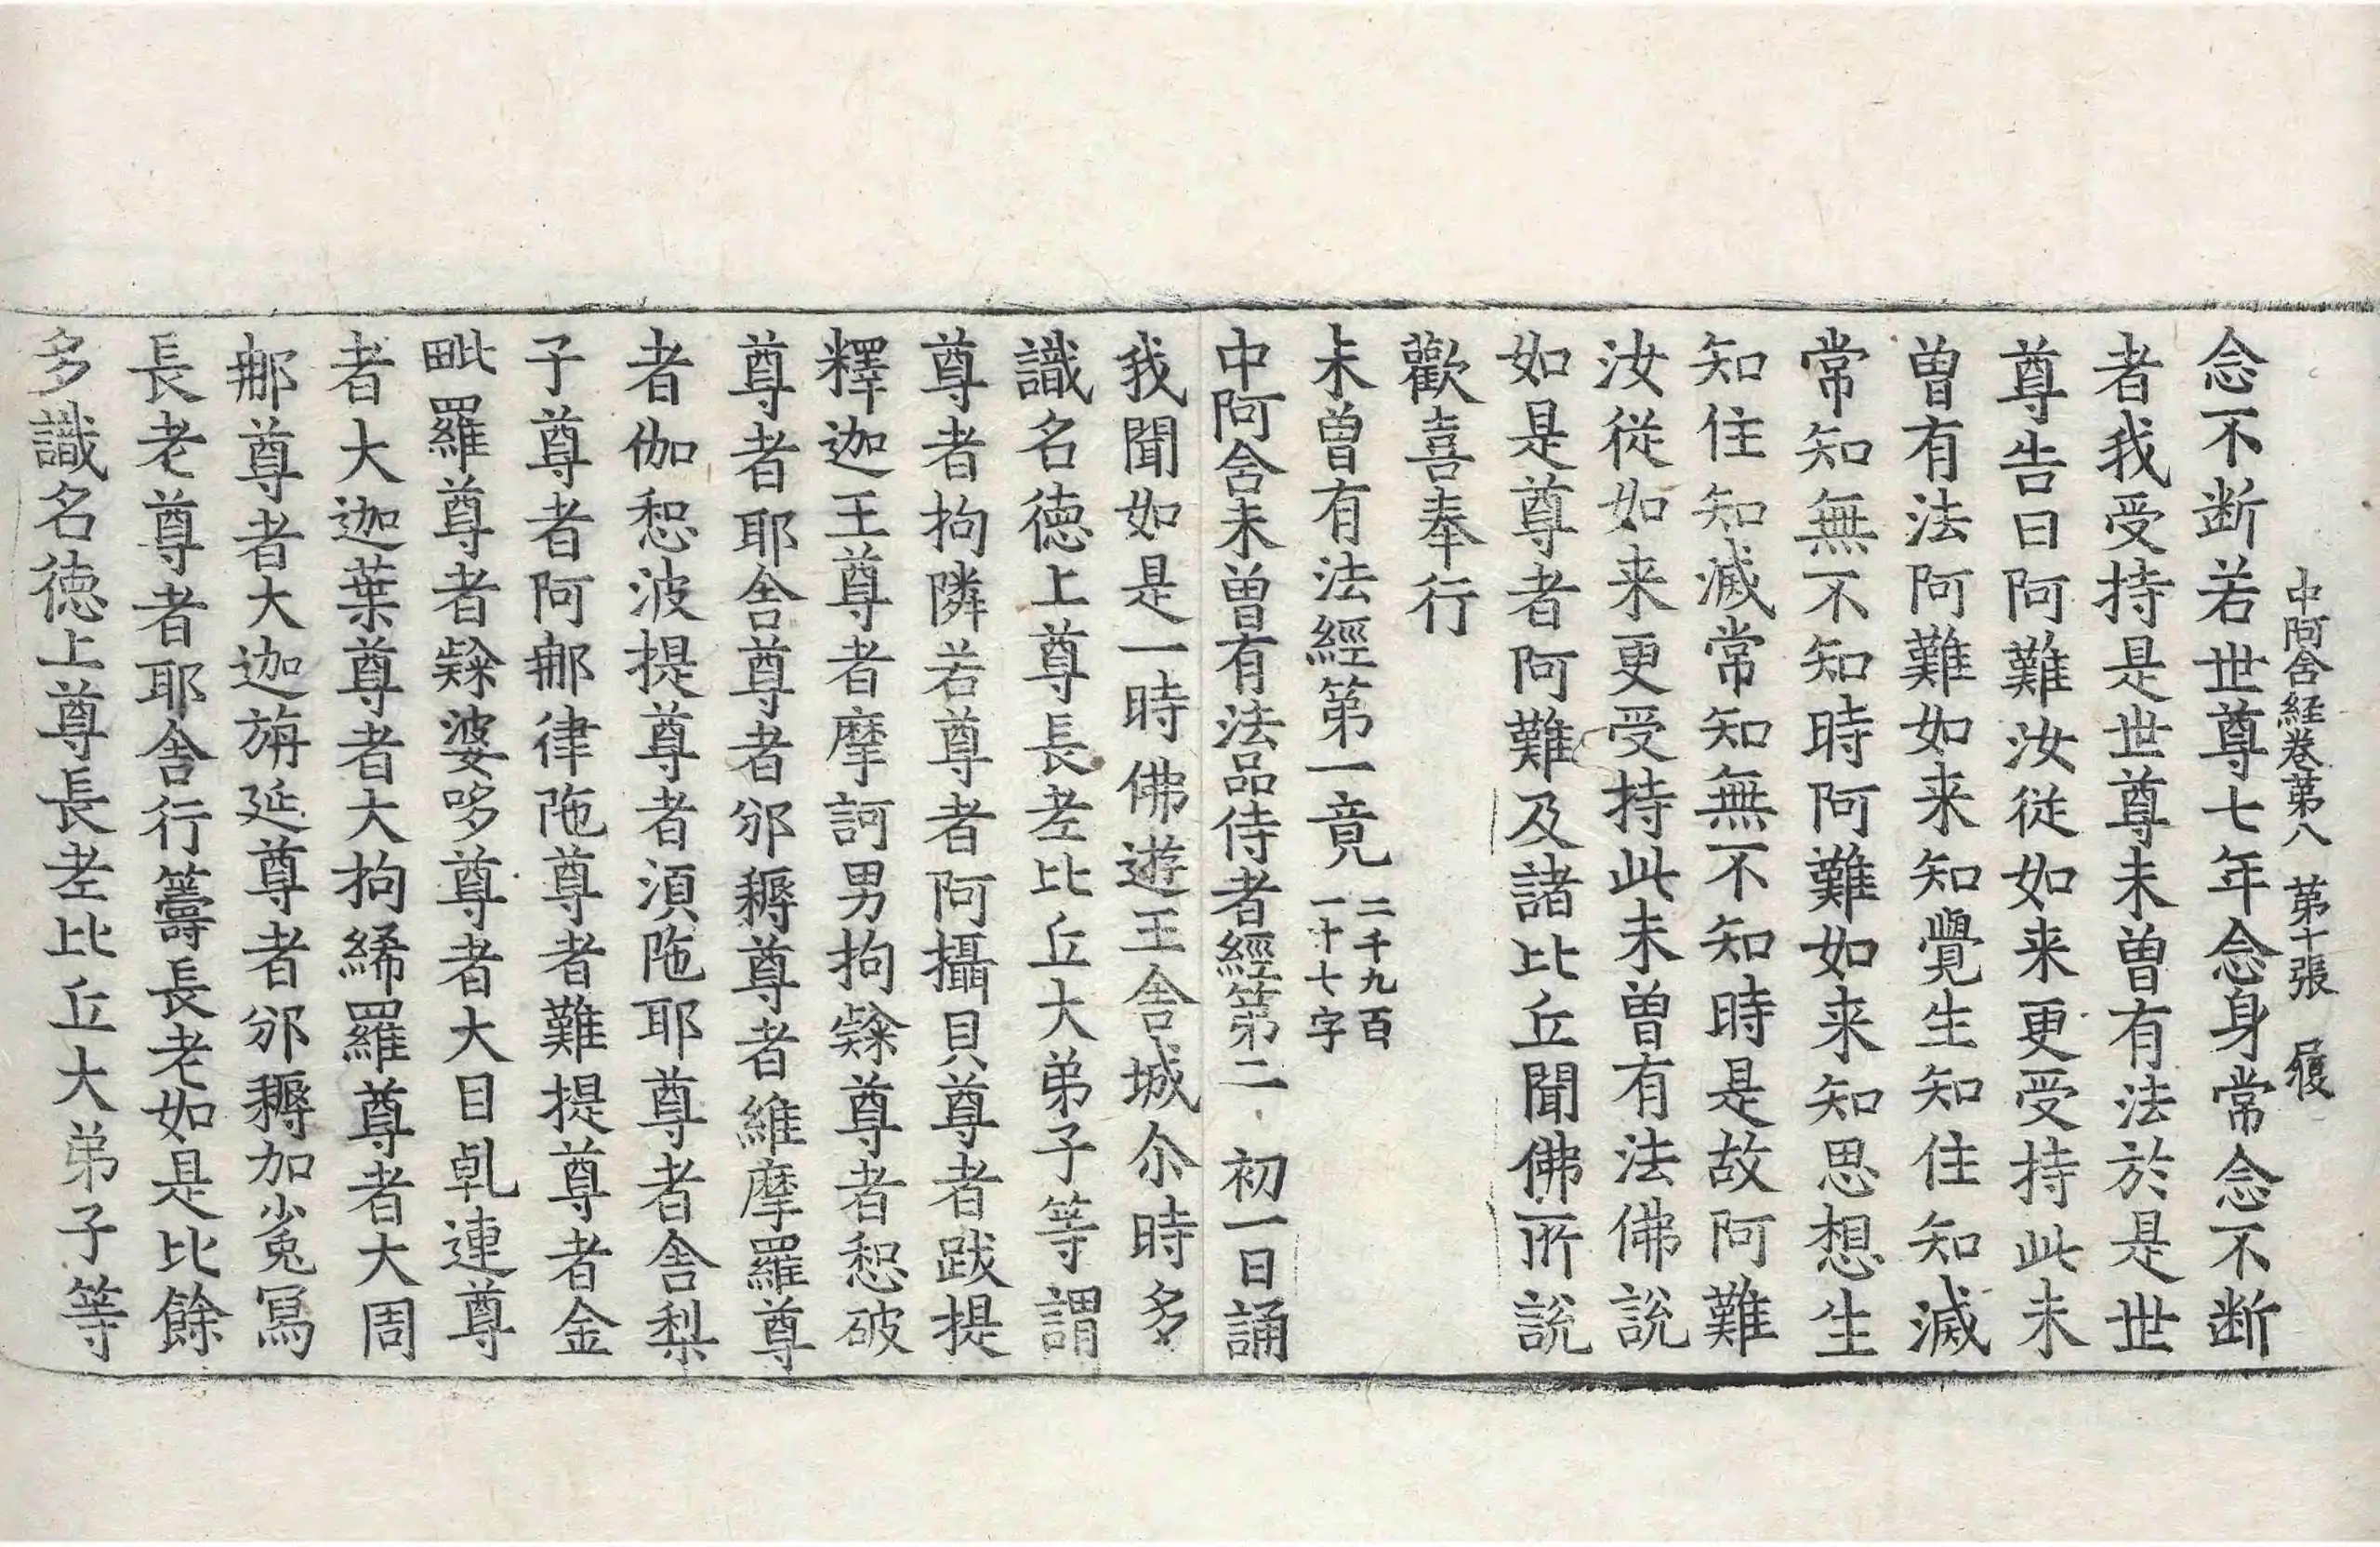 中阿含経卷苐八 苐十張 履
念不断若世尊七年念身常念不断
者我受持是世尊未曾有法於是世
尊告曰阿難汝從如来更受持此未
曾有法阿難如来知覺生知住知滅
常知無不知時阿難如来知思想生
知住知滅常知無不知時是故阿難
汝從如来更受持此未曾有法佛說
如是尊者阿難及諸比丘聞佛所說
歡喜奉行
未曾有法經苐一竟二千九百一十七字
中阿含未曾有法品侍者經苐二 初一日誦
我聞如是一時佛遊王舍城尒時多
識名徳上尊長老比丘大弟子等謂
尊者拘隣若尊者阿攝貝尊者跋提
釋迦王尊者摩訶男拘𨽻尊者惒破
尊者耶舍尊者邠耨尊者維摩羅尊
者伽惒波提尊者湏陁耶尊者舍梨
子尊者阿那律陁尊者難提尊者金
毗羅尊者𨽻婆哆尊者大目乹連尊
者大迦葉尊者大拘絺羅尊者大周
那尊者大迦旃延尊者邠耨加㝹寫
長老尊者耶舍行籌長老如是比餘
多識名徳上尊長老比丘大弟子等